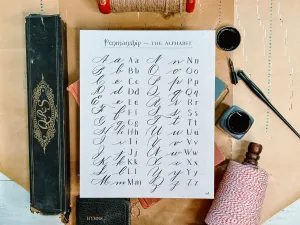 Penmanship — THE ALPHABET
A a Aa N n Nn
B b Bb O o Oo
C c Cc P p Pp
D d Dd Q q Qq
E e Ee R r Rr
F f Ff S s Ss
G g Gg T t Tt
H h Hh U u Uu
I i Ii V v Vv
J j Jj W w Ww
K k Kk X x Xx
L l Ll Y y Yy
M m Mm Z z Zz
HYMNS